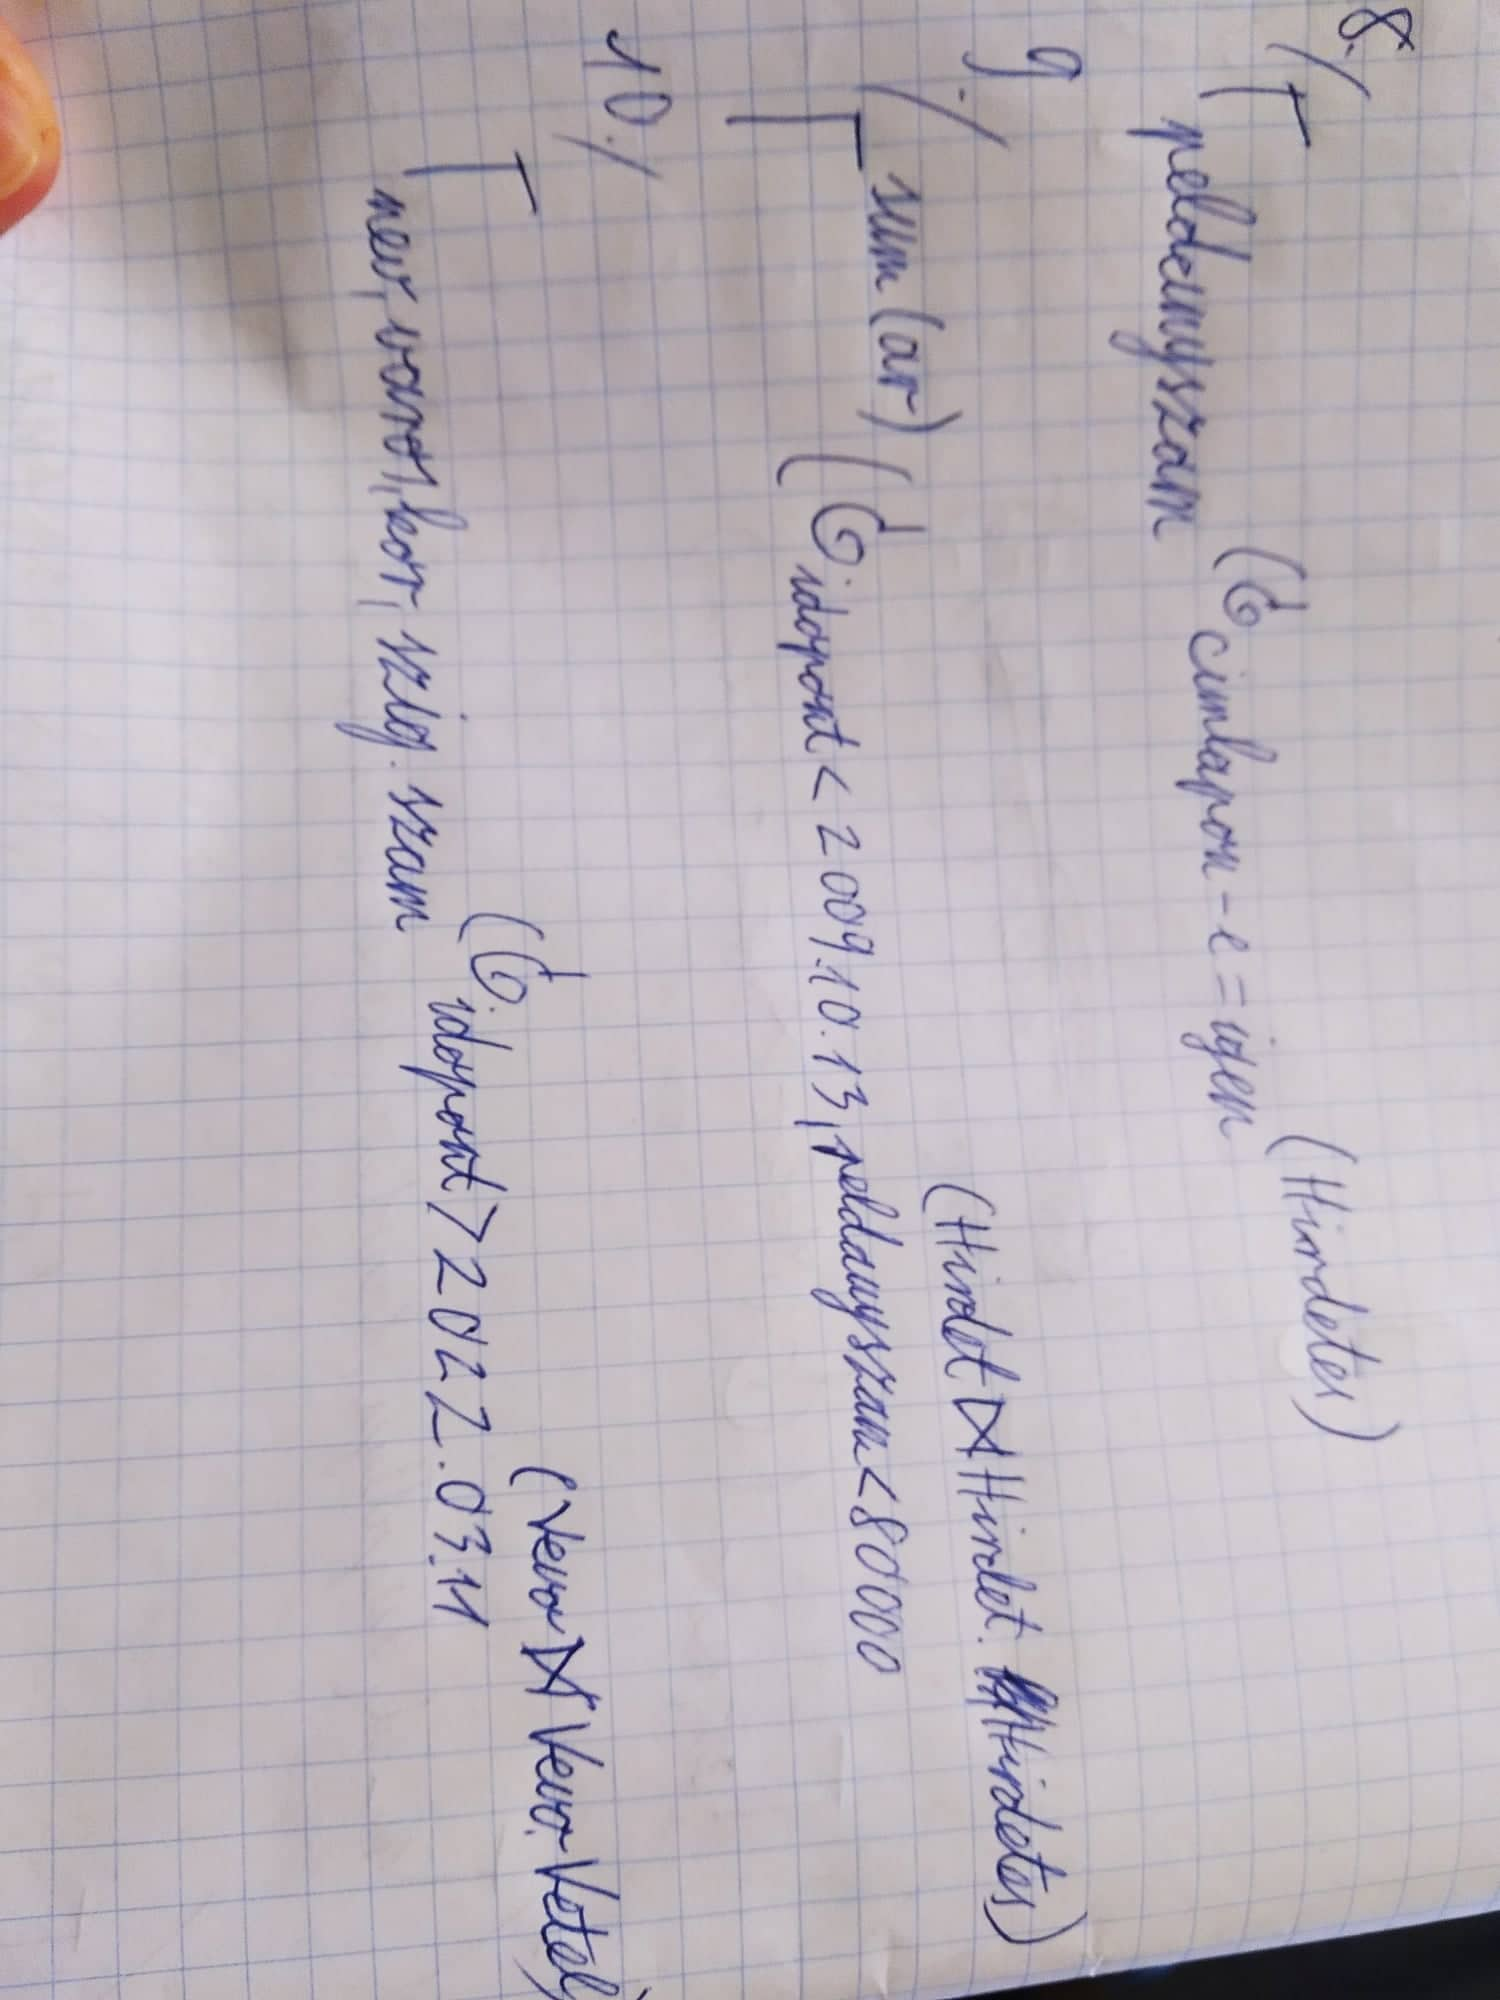 8./
Π peldanyszam (σ cimlapon-e=igen (Hirdetes)
9./
Π sum(ar) (σ idopont<2009.10.13, peldanyszam<80000 (Hirdet ⋈ Hirdet. Hirdetes)
10./
Π nev, varos, kor, szig.szam (σ idopont>2022.03.11 (Vevo ⋈ Vevo.Vetel)